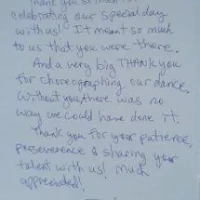 Thank you so much for
celebrating our special day
with us! It meant so much
to us that you were there.
And a very big THANK you
for choreographing our dance.
Without you, there was no
way we could have done it.
Thank you for your patience,
perseverence & sharing your
talent with us! Much
appreciated!